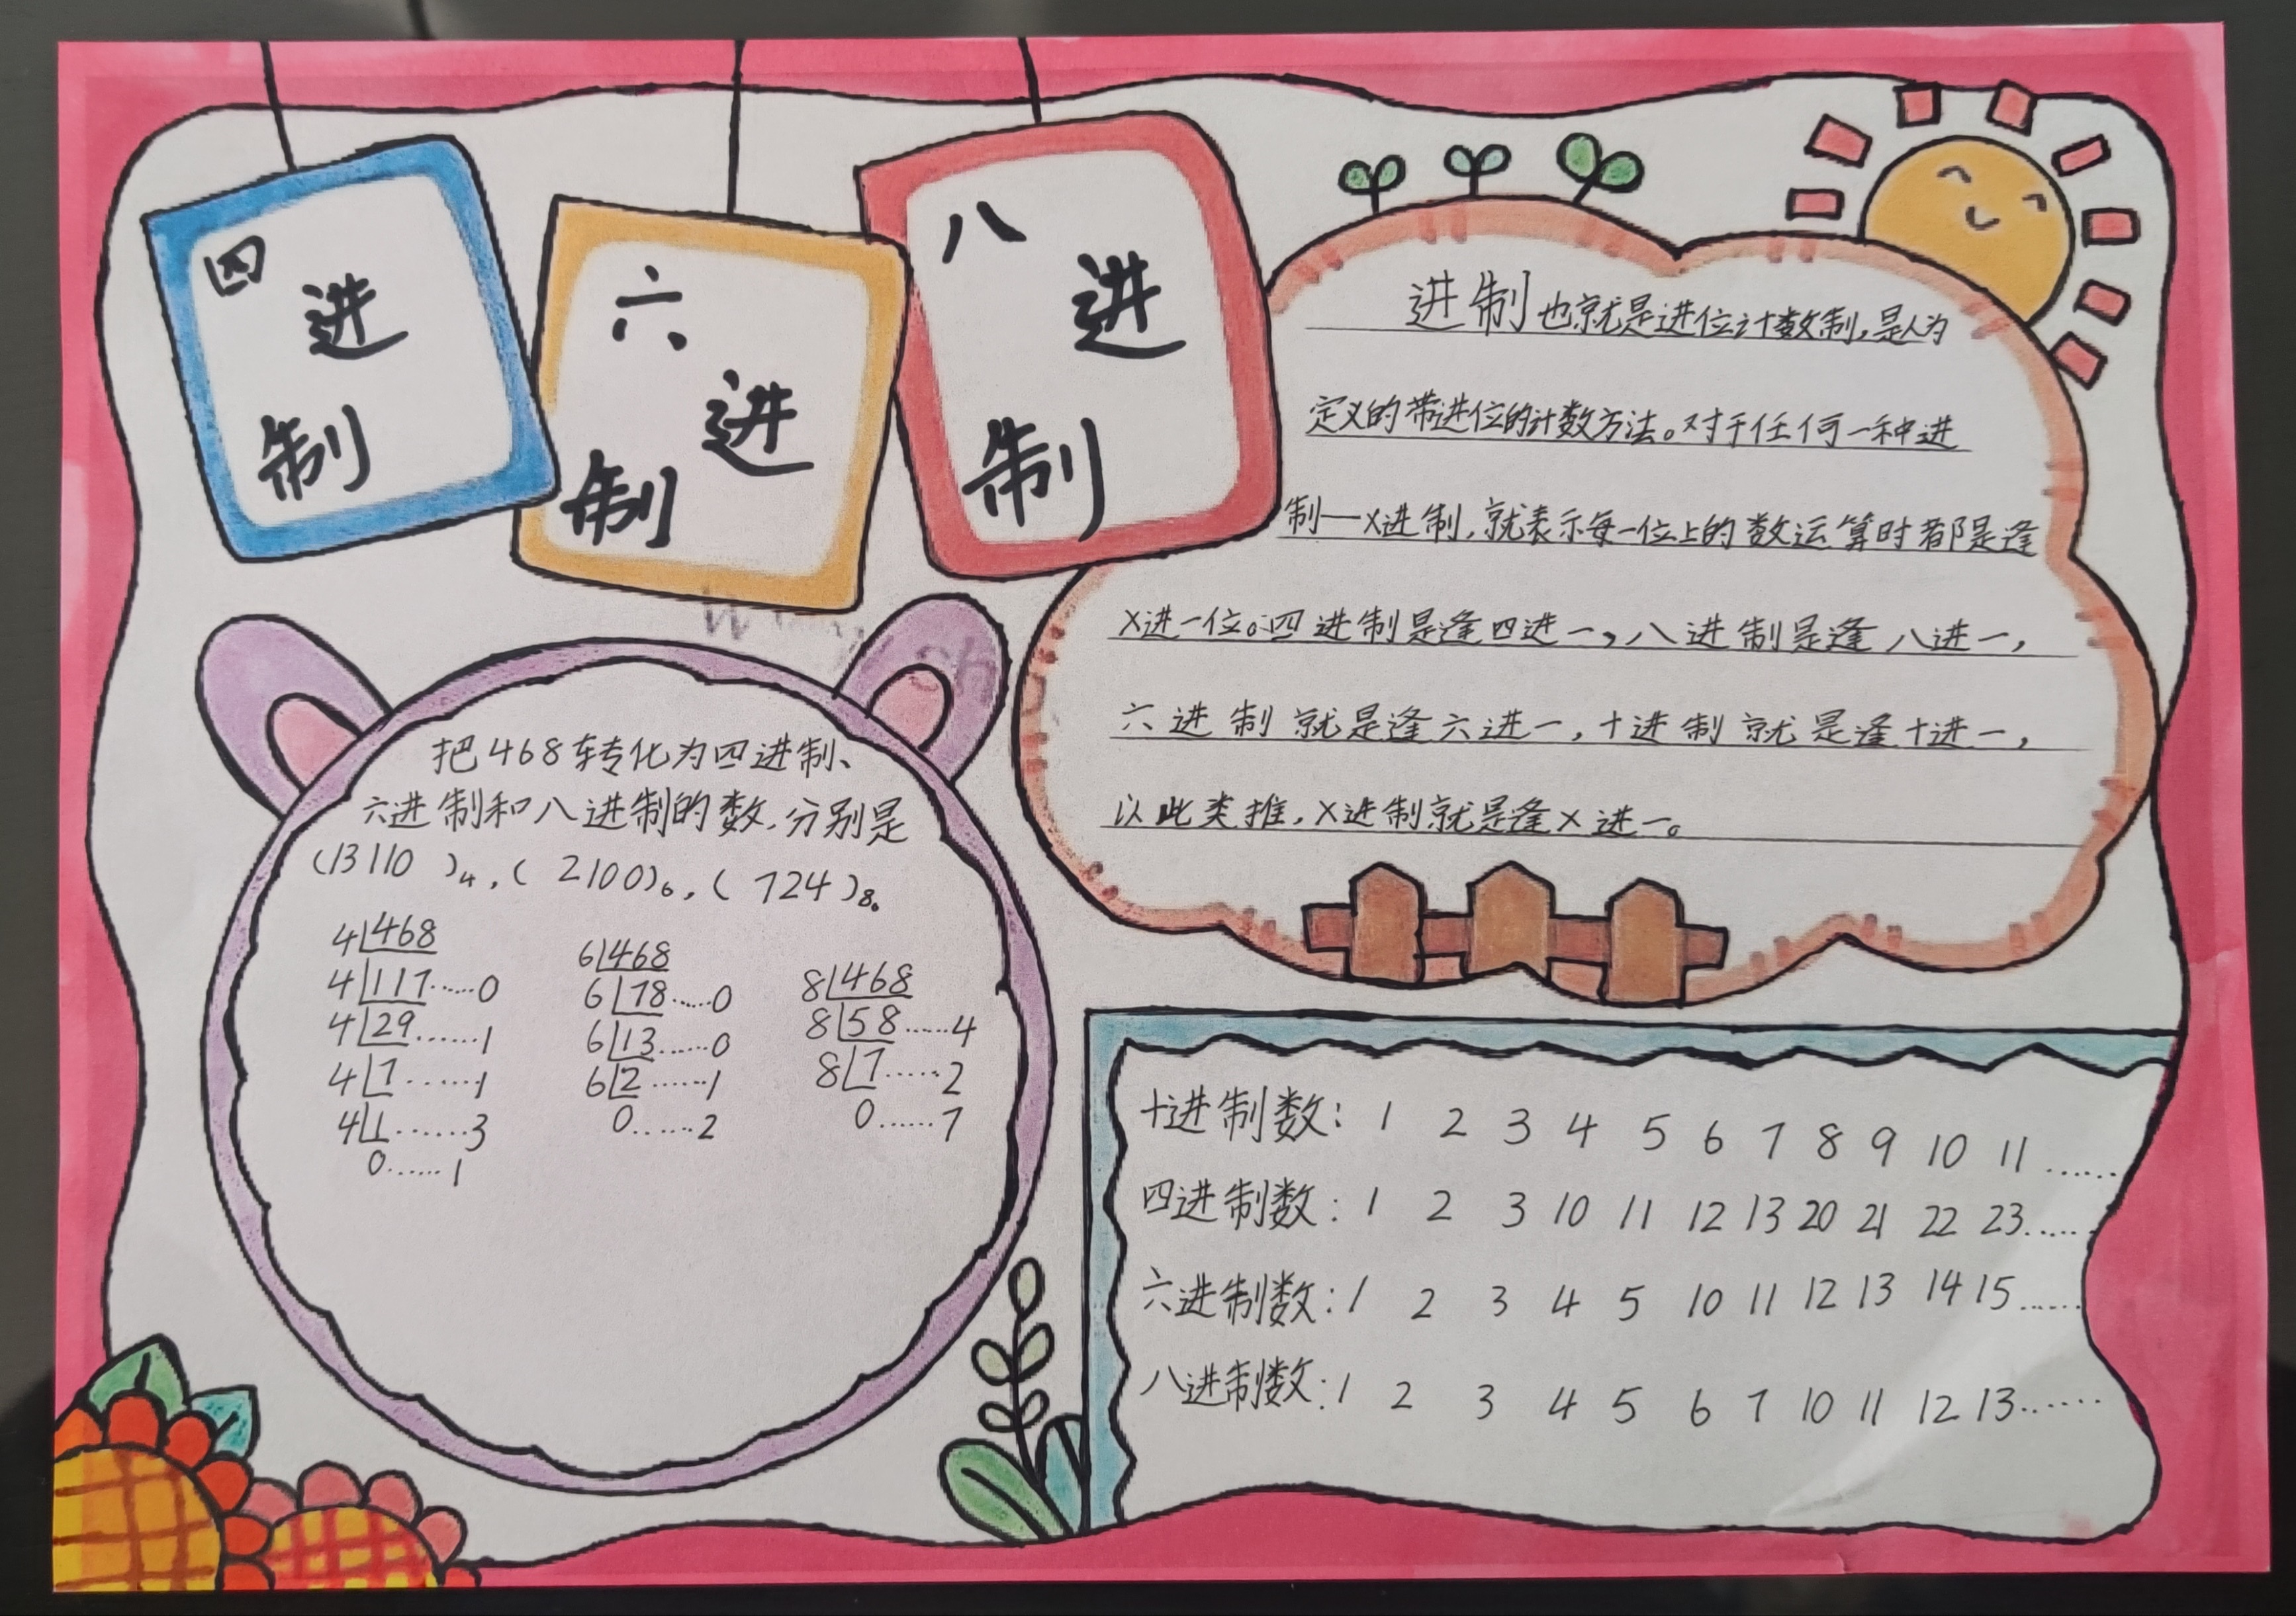 四
进
制
六
进
制
八
进
制
进制也就是进位计数制,是人为
定义的带进位的计数方法。对于任何一种进
制—X进制,就表示每一位上的数运算时都是逢
X进一位。四进制是逢四进一,八进制是逢八进一,
六进制就是逢六进一,十进制就是逢十进一,
以此类推,X进制就是逢X进一。
把468转化为四进制、
六进制和八进制的数,分别是
(13110 )4,( 2100)6,( 724)8。
4|468
4|117......0
4|29.......1
4|7.......1
4|1.......3
0......1
6|468
6|78......0
6|13......0
6|2......1
0......2
8|468
8|58......4
8|7......2
0......7
十进制数: 1 2 3 4 5 6 7 8 9 10 11......
四进制数: 1 2 3 10 11 12 13 20 21 22 23......
六进制数: 1 2 3 4 5 10 11 12 13 14 15......
八进制数: 1 2 3 4 5 6 7 10 11 12 13......